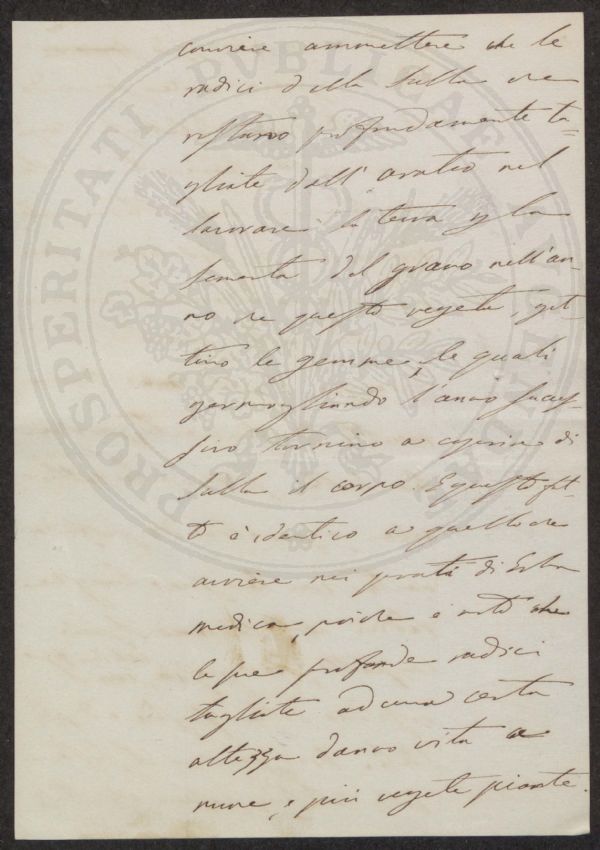 conviene ammettere che le
radici della sulla che
restano profondamente ta=
gliate dall'aratro nel
lavorare la terra per la
sementa del grano nell'an-
no che questo vegeta, get-
tino le gemme, le quali
germogliando l'anno succes-
sivo tornino a coprire di
sulla il campo. E questo fat-
to è identico a quello che
avviene nei prati di Erba
medica, poiche è noto che
le sue profonde radici
tagliate ad una certa
altezza danno vita a
nuove, e più vegete piante.
PROSPERITATI PUBLICAE AUGENDAE